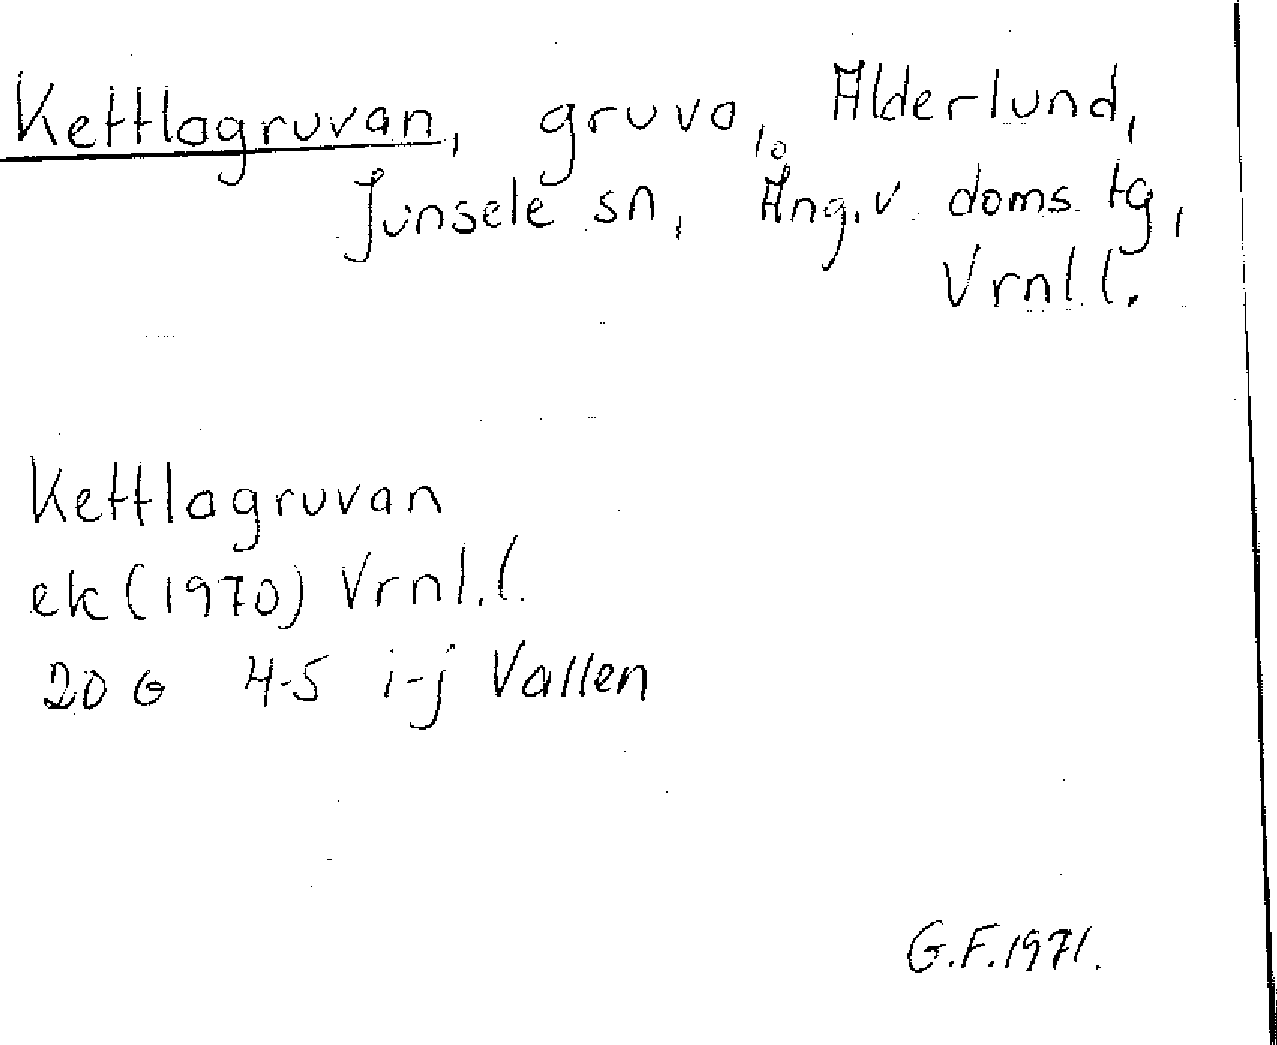 Kettlagruvan, gruva, Alderlund,
Junsele sn, Ång. v. doms. tg,
Vrnl. l.
Kettlagruvan
ek (1970) Vrnl. l.
20 G 4-5 i-j Vallen
G.F. 1971.